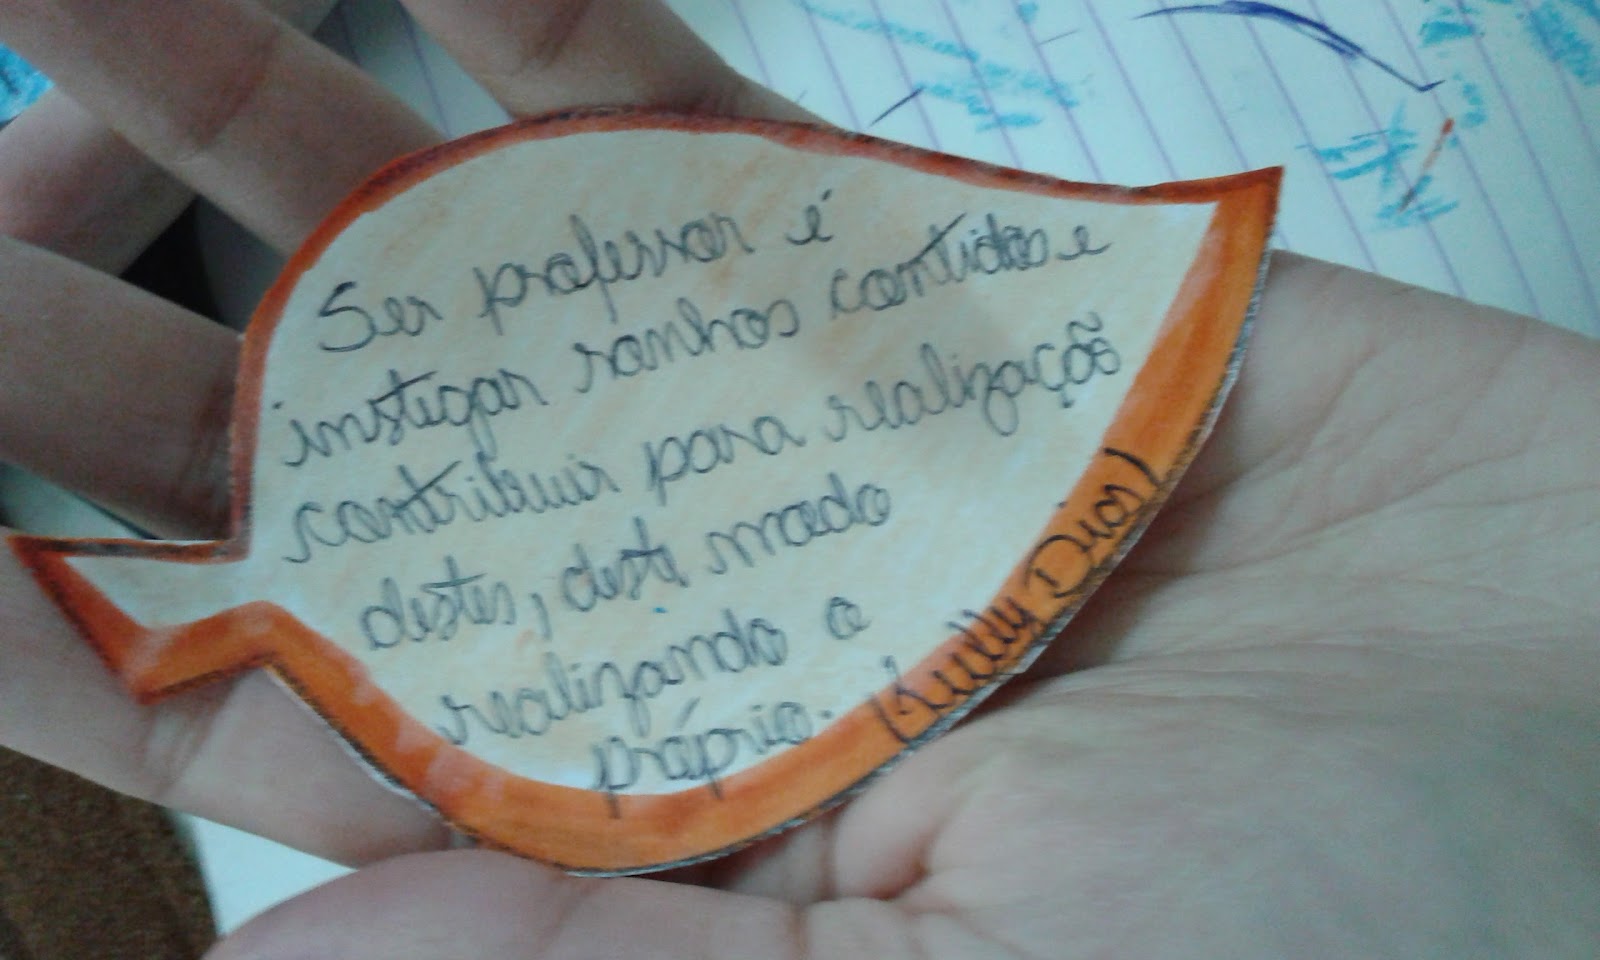 Ser professor é
instigar sonhos contidos e
contribuir para realização
destes, deste modo
realizando o
próprio.
Dias)